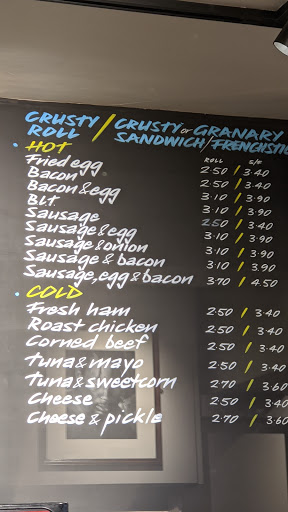 CRUSTY ROLL / CRUSTY or GRANARY
SANDWICH / FRENCHSTIC
• HOT ROLL S/F
Fried egg 2.50 / 3.40
Bacon 2.50 / 3.40
Bacon & egg 3.10 / 3.90
BLT 3.10 / 3.90
Sausage 2.50 / 3.40
Sausage & egg 3.10 / 3.90
Sausage & onion 3.10 / 3.90
Sausage & bacon 3.10 / 3.90
Sausage, egg & bacon 3.70 / 4.50
• COLD
Fresh ham 2.50 / 3.40
Roast chicken 2.50 / 3.40
Corned beef 2.50 / 3.40
tuna & mayo 2.50 / 3.40
tuna & sweetcorn 2.70 / 3.60
Cheese 2.50 / 3.40
Cheese & pickle 2.70 / 3.60